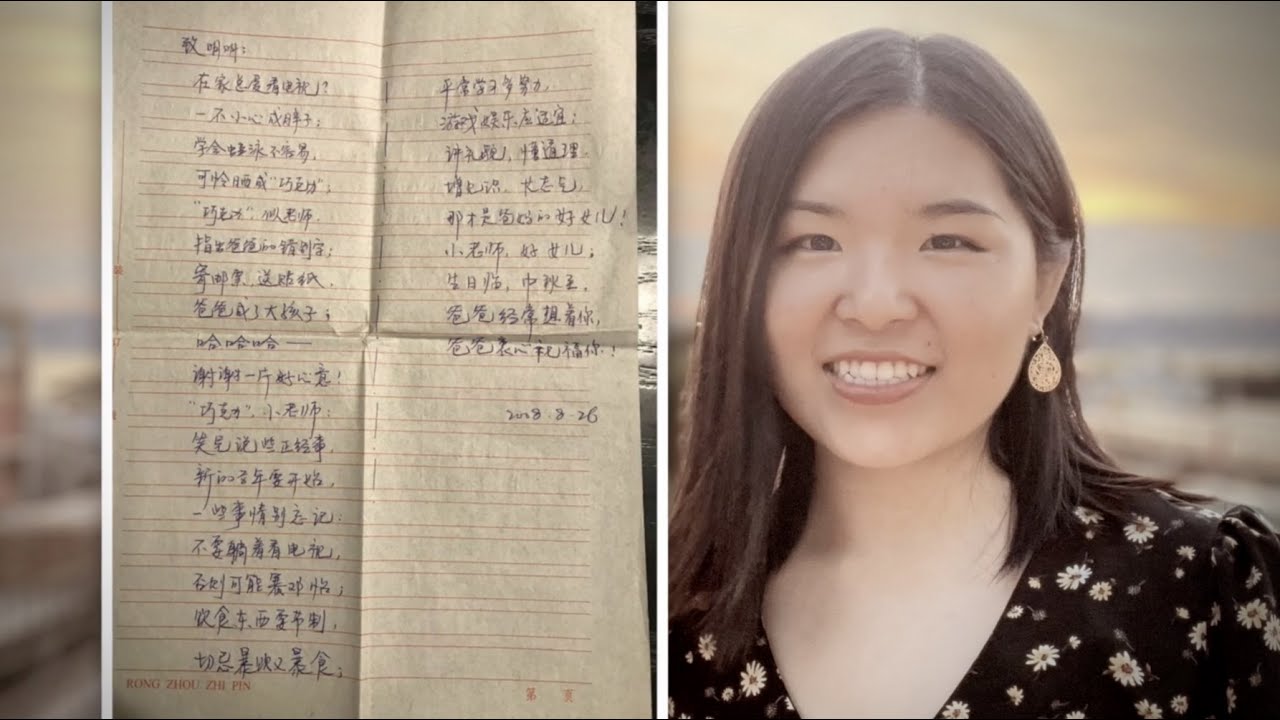 致
在家总爱看电视?
一不小心成胖子;
学会游泳不容易,
可怜晒成“巧克力”;
“巧克力”,似老师,
指出爸爸的错别字;
寄邮票,送贴纸,
爸爸成了大孩子;
哈哈哈——
谢谢一片好心意!
“巧克力”,小老师:
笑完说些正经事,
新的学年要开始,
一些事情别忘记:
不要躺着看电视,
否则可能赛邓怡;
饮食东西要节制,
切忌暴饮又暴食;
平常学习多努力,
游戏娱乐应适宜;
讲礼貌,懂道理,
增知识,长志气,
那才是爸妈的好女儿!
小老师,好女儿;
生日临,中秋至,
爸爸经常想着你,
爸爸衷心祝福你!
2008.8.26
RONG ZHOU ZHI PIN
第 页